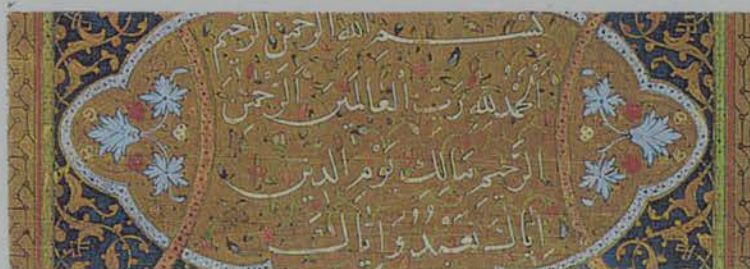 بسم الله الرحمن الرحيم
الحمد لله رب العالمين الرحمن
الرحيم مالك يوم الدين
اياك نعبد و اياك